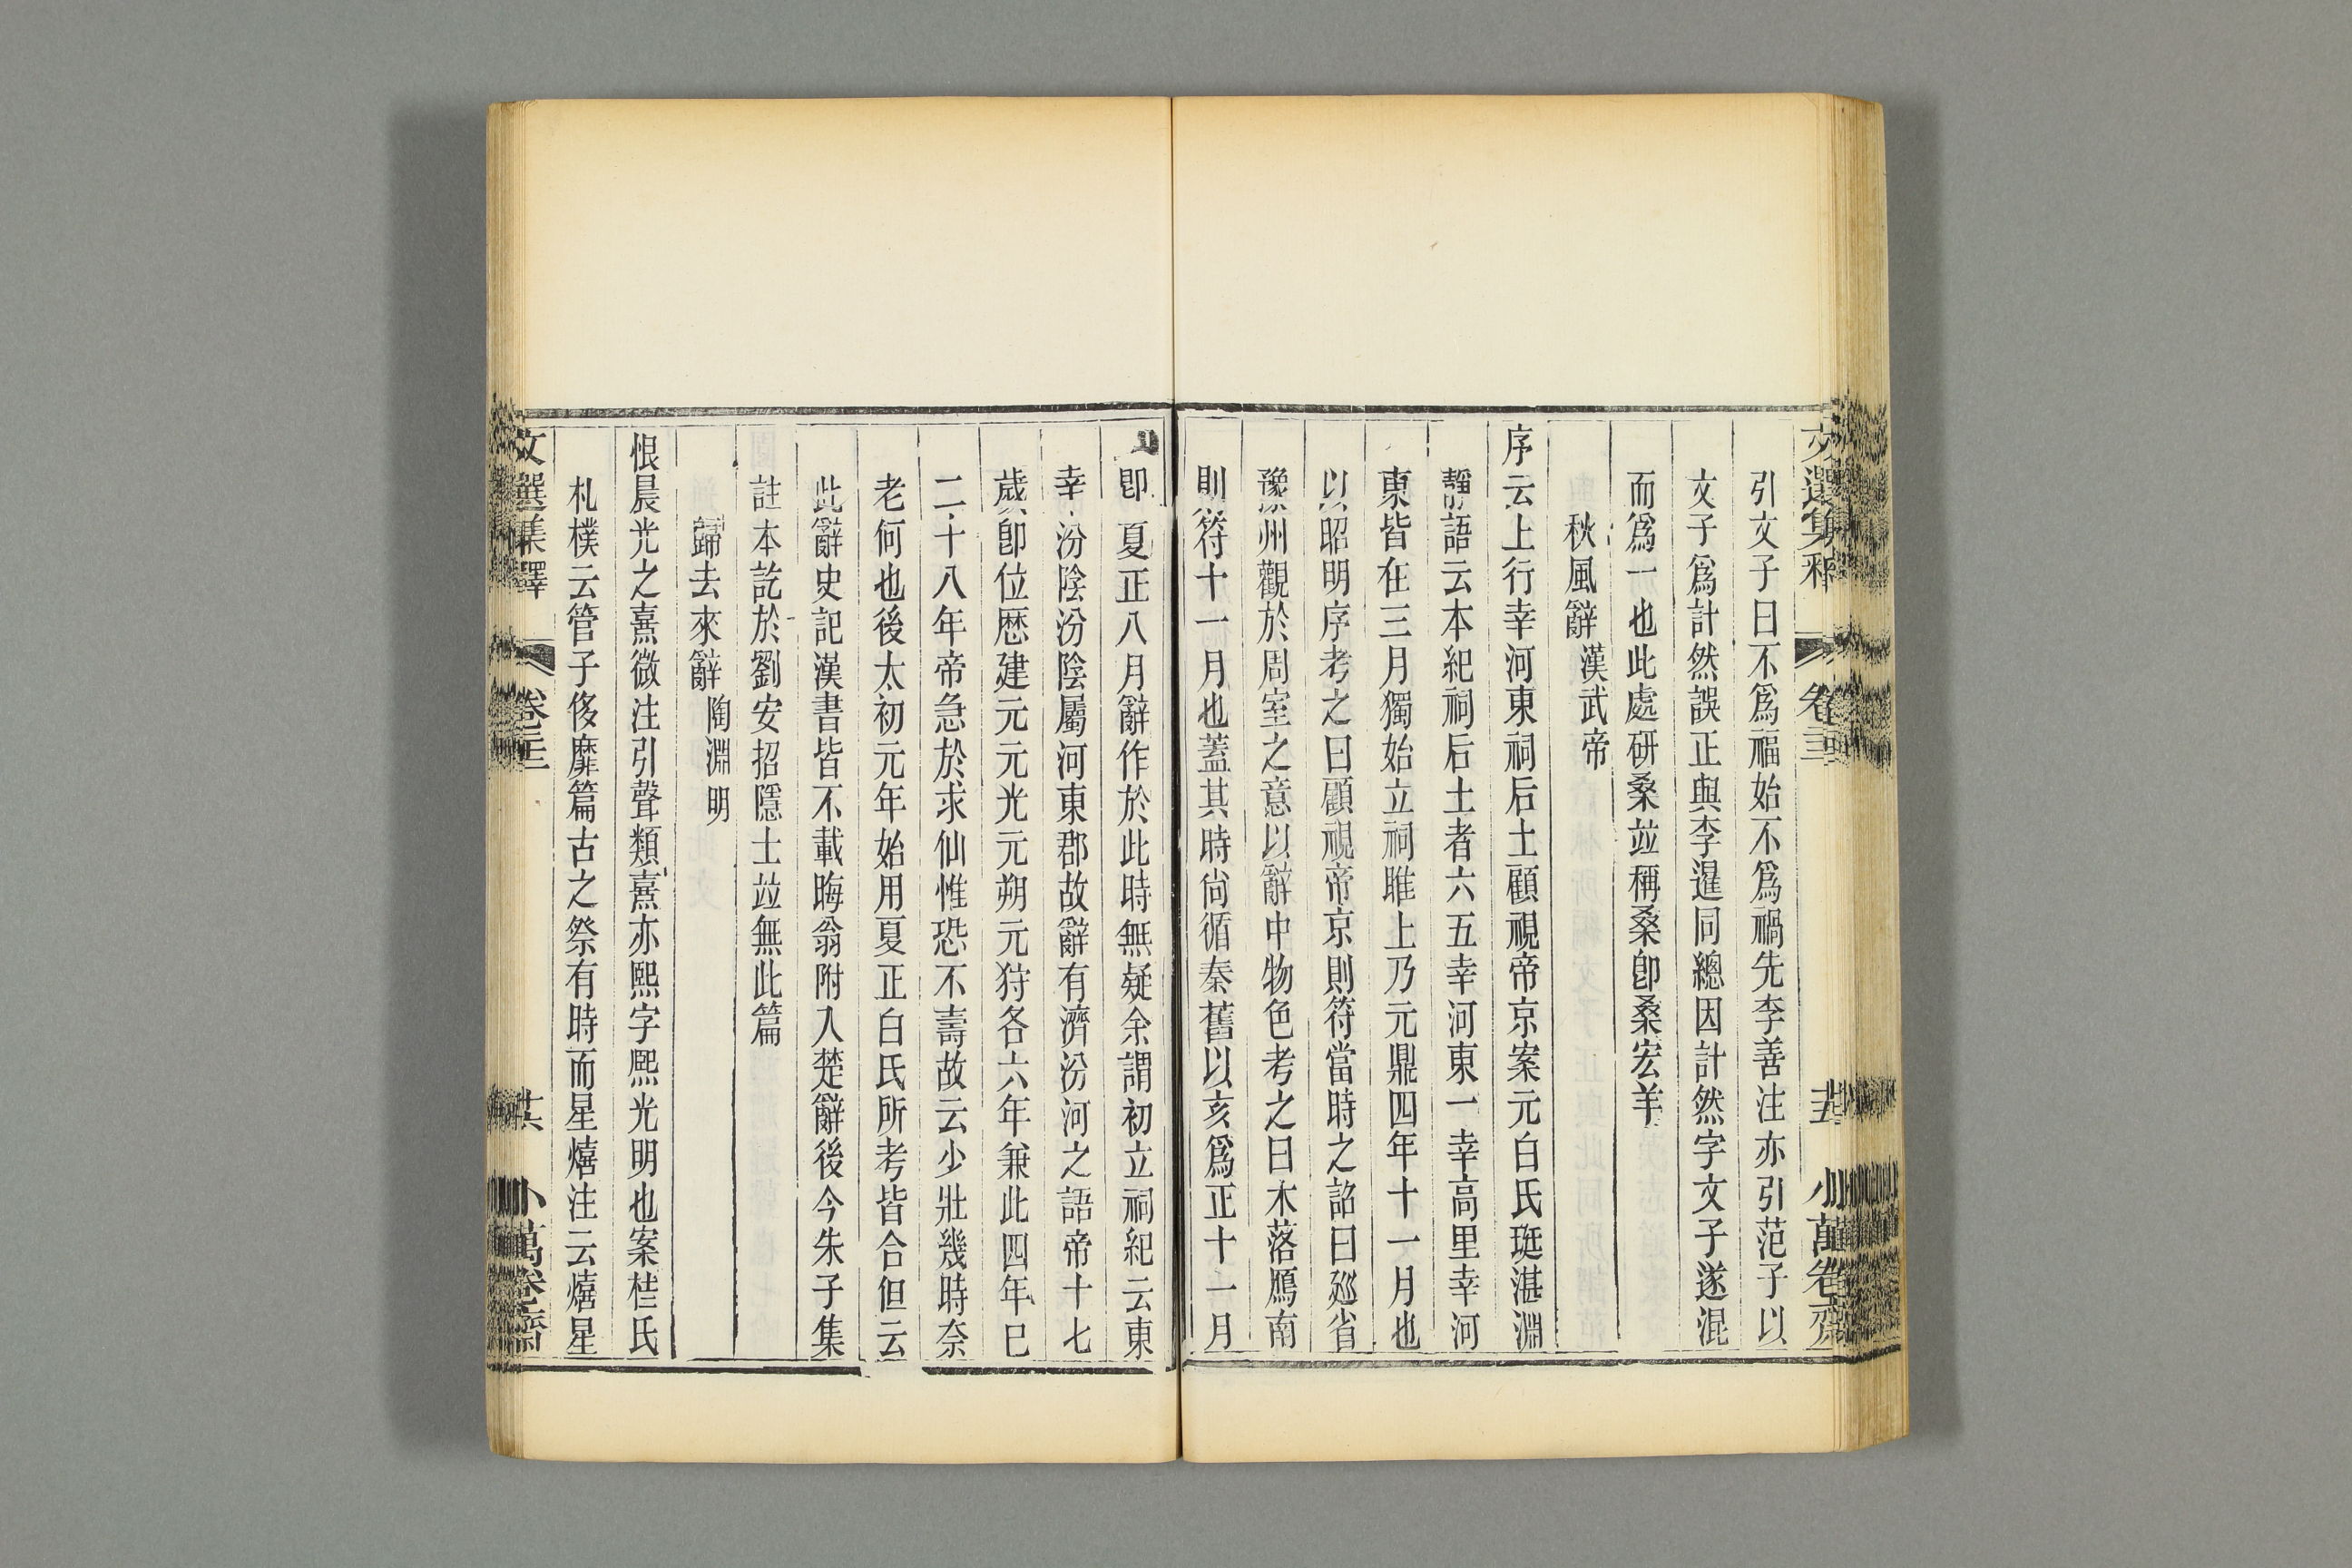 引文子曰不爲福始不爲禍先李善注亦引范子以
文子爲計然誤正與李暹同總因計然字文子遂混
而爲一也此處研桑竝稱桑卽桑宏羊
秋風辭 漢武帝
序云上行幸河東祠后土顧視帝京案元白氏珽湛淵
靜語云本紀祠后土者六五幸河東一幸高里幸河
東皆在三月獨始立祠脽上乃元鼎四年十一月也
以昭明序考之曰顧視帝京則符當時之詔曰廵省
豫州觀於周室之意以辭中物色考之曰木落鴈南
則符十一月也蓋其時尙循秦舊以亥爲正十一月
卽夏正八月辭作於此時無疑余謂初立祠紀云東
幸汾陰汾陰屬河東郡故辭有濟汾河之語帝十七
歲卽位歷建元元光元朔元狩各六年兼此四年已
二十八年帝急於求仙惟恐不壽故云少壯幾時奈
老何也後太初元年始用夏正白氏所考皆合但云
此辭史記漢書皆不載晦翁附入楚辭後今朱子集
註本訖於劉安招隱士竝無此篇
歸去來辭 陶淵明
恨晨光之熹微注引聲類熹亦熙字熙光明也案桂氏
札樸云管子侈靡篇古之祭有時而星熺注云熺星
文選集釋 卷二十三 小萬卷齋